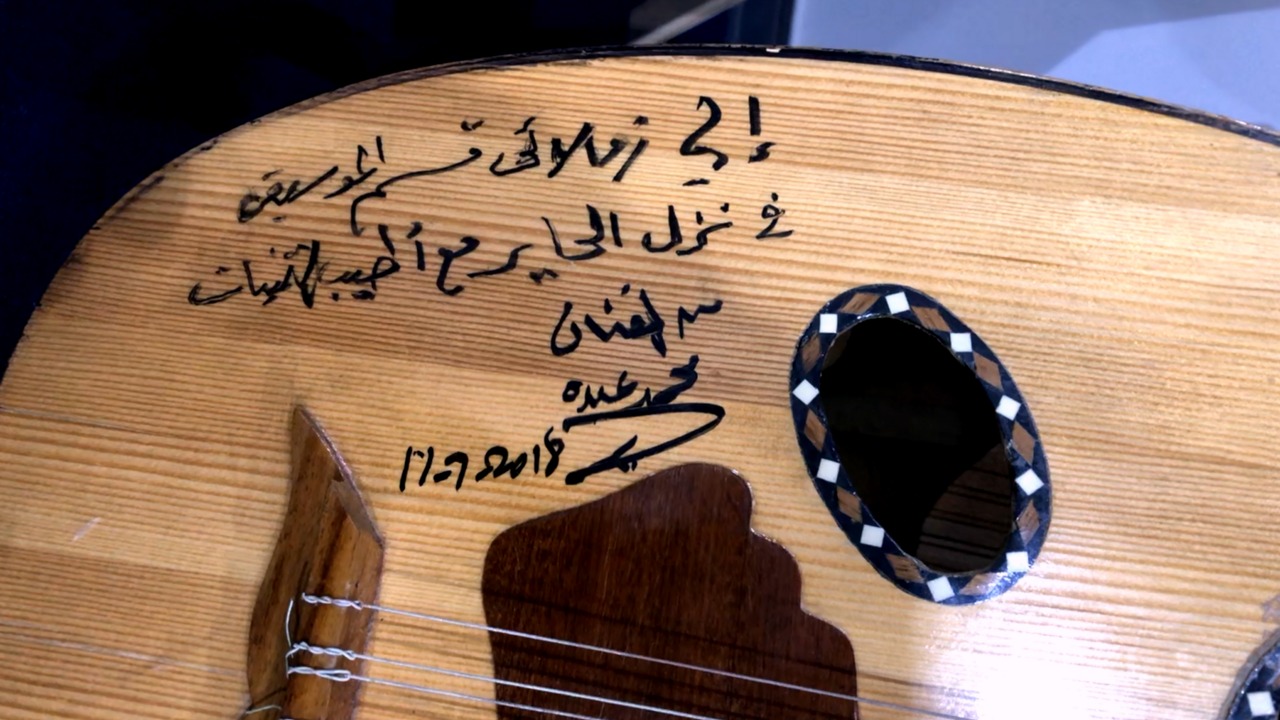 إلى زملائي قسم الموسيقه
في نزل الحاير مع أطيب التمنيات
من الفنان
محمد عبده
17-7-2018